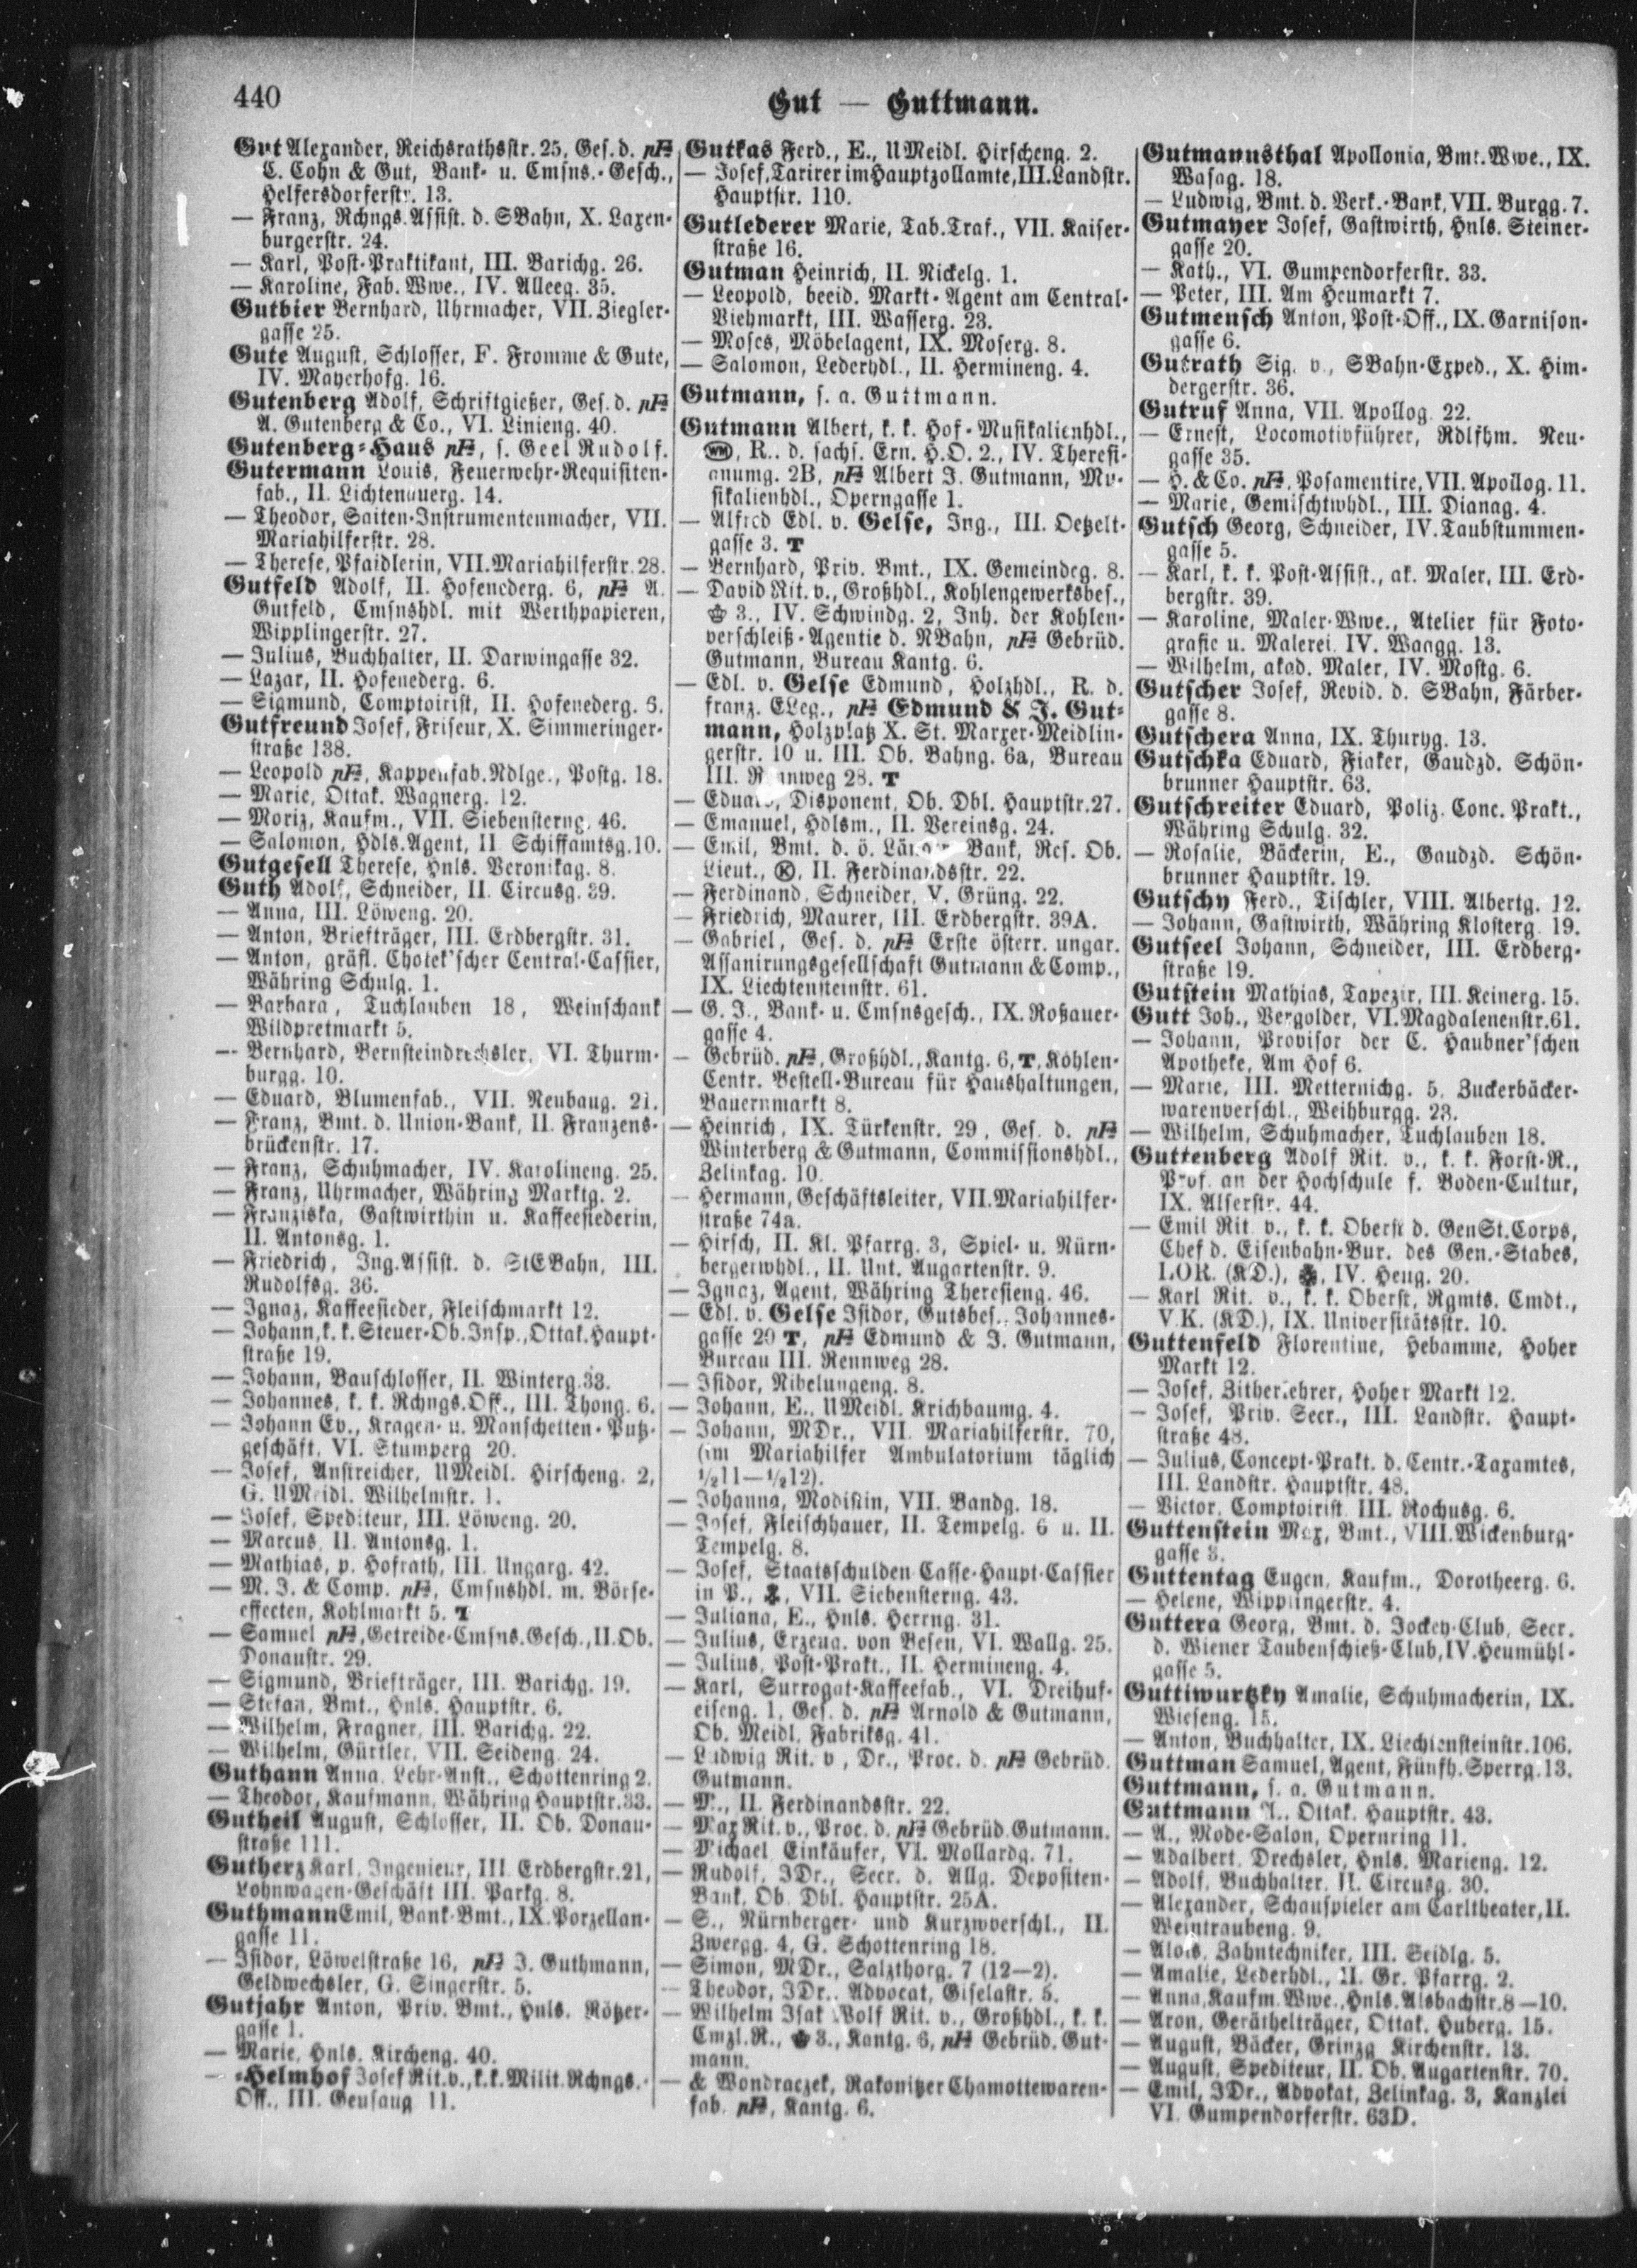 440
Gut — Guttmann.
Gut Alexander, Reichsrathsstr. 25, Ges. d.
C. Cohn & Gut, Bank- u. Cmsns.-Gesch.,
Helfersdorferstr. 13.
— Franz, Rchngs.Assist. d. SBahn, X. Laxen-
burgerstr. 24.
— Karl, Post-Praktikant, III. Barichg. 26.
— Karoline, Fab. Wwe., IV. Alleeg. 35.
Gutbier Bernhard, Uhrmacher, VII. Ziegler-
gasse 25.
Gute August, Schlosser, F. Fromme & Gute,
IV. Mayerhofg. 16.
Gutenberg Adolf, Schriftgießer, Ges. d.
A. Gutenberg & Co., VI. Linieng. 40.
Gutenberg-Haus , s. Geel Rudolf.
Gutermann Louis, Feuerwehr-Requisiten-
fab., II. Lichtenauerg. 14.
— Theodor, Saiten-Instrumentenmacher, VII.
Mariahilferstr. 28.
— Therese, Pfaidlerin, VII. Mariahilferstr. 28.
Gutfeld Adolf, II. Hofenederg. 6, A.
Gutfeld, Cmsnshdl. mit Werthpapieren,
Wipplingerstr. 27.
— Julius, Buchhalter, II. Darwingasse 32.
— Lazar, II. Hofenederg. 6.
— Sigmund, Comptoirist, II. Hofenederg. 6.
Gutfreund Josef, Friseur, X. Simmeringer-
straße 138.
— Leopold , Kappenfab. Ndlge., Postg. 18.
— Marie, Ottak. Wagnerg. 12.
— Moriz, Kaufm., VII. Siebensterng. 46.
— Salomon, Hdls.Agent, II Schiffamtsg. 10.
Gutgesell Therese, Hnls. Veronikag. 8.
Guth Adolf, Schneider, II. Circusg. 39.
— Anna, III. Löweng. 20.
— Anton, Briefträger, III. Erdbergstr. 31.
— Anton, gräfl. Chotek'scher Central-Cassier,
Währing Schulg. 1.
— Barbara, Tuchlauben 18, Weinschank
Wildpretmarkt 5.
— Bernhard, Bernsteindrechsler, VI. Thurm-
burgg. 10.
— Eduard, Blumenfab., VII. Neubaug. 21.
— Franz, Bmt. d. Union-Bank, II. Franzens-
brückenstr. 17.
— Franz, Schuhmacher, IV. Karolineng. 25.
— Franz, Uhrmacher, Währing Marktg. 2.
— Franziska, Gastwirthin u. Kaffeesiederin,
II. Antonsg. 1.
— Friedrich, Ing.Assist. d. StEBahn, III.
Rudolfsg. 36.
— Ignaz, Kaffeesieder, Fleischmarkt 12.
— Johann, k. k. Steuer-Ob. Insp., Ottak. Haupt-
straße 19.
— Johann, Bauschlosser, II. Winterg. 33.
— Johannes, k. k. Rchngs.Off., III. Thong. 6.
— Johann Ev., Kragen- u. Manschetten-Putz-
geschäft, VI. Stumperg 20.
— Josef, Anstreicher, UMeidl. Hirscheng. 2,
G. UMeidl. Wilhelmstr. 1.
— Josef, Spediteur, III. Löweng. 20.
— Marcus, II. Antonsg. 1.
— Mathias, p. Hofrath, III. Ungarg. 42.
— M. J. & Comp. , Cmsnshdl. m. Börse-
effecten, Kohlmarkt 5. T
— Samuel , Getreide-Cmsns. Gesch., II. Ob.
Donaustr. 29.
— Sigmund, Briefträger, III. Barichg. 19.
— Stefan, Bmt., Hnls. Hauptstr. 6.
— Wilhelm, Fragner, III. Barichg. 22.
— Wilhelm, Gürtler, VII. Seideng. 24.
Guthann Anna, Lehr-Anst., Schottenring 2.
— Theodor, Kaufmann, Währing Hauptstr. 33.
Gutheil August, Schlosser, II. Ob. Donau-
straße 111.
Gutherz Karl, Ingenieur, III Erdbergstr. 21,
Lohnwagen-Geschäft III. Parkg. 8.
Guthmann Emil, Bank-Bmt., IX. Porzellan-
gasse 11.
— Isidor, Löwelstraße 16, J. Guthmann,
Geldwechsler, G. Singerstr. 5.
Gutjahr Anton, Priv. Bmt., Hnls. Rötzer-
gasse 1.
— Marie, Hnls. Kircheng. 40.
— -Helmhof Josef Rit. v., k. k. Milit. Rchngs.-
Off., III. Geusaug 11.
Gutkas Ferd., E., UMeidl. Hirscheng. 2.
— Josef, Tarirer im Hauptzollamte, III. Landstr.
Hauptstr. 110.
Gutlederer Marie, Tab. Traf., VII. Kaiser-
straße 16.
Gutman Heinrich, II. Nickelg. 1.
— Leopold, beeid. Markt-Agent am Central-
Viehmarkt, III. Wasserg. 23.
— Moses, Möbelagent, IX. Moserg. 8.
— Salomon, Lederhdl., II. Hermineng. 4.
Gutmann, s. a. Guttmann.
Gutmann Albert, k. k. Hof-Musikalienhdl.,
WM, R.. d. sächs. Ern. H.O. 2., IV. Theresi-
anumg. 2B, Albert J. Gutmann, Mu-
sikalienhdl., Operngasse 1.
— Alfred Edl. v. Gelse, Ing., III. Oetzelt-
gasse 3. T
— Bernhard, Priv. Bmt., IX. Gemeindeg. 8.
— David Rit. v., Großhdl., Kohlengewerksbes.,
3., IV. Schwindg. 2, Inh. der Kohlen-
verschleiß-Agentie d. NBahn, Gebrüd.
Gutmann, Bureau Kantg. 6.
— Edl. v. Gelse Edmund, Holzhdl., R. d.
franz. ELeg., Edmund & J. Gut-
mann, Holzplatz X. St. Marxer-Meidlin-
gerstr. 10 u. III. Ob. Bahng. 6a, Bureau
III. Rennweg 28. T
— Eduard, Disponent, Ob. Dbl. Hauptstr. 27.
— Emanuel, Hdlsm., II. Vereinsg. 24.
— Emil, Bmt. d. ö. Länder Bank, Res. Ob.
Lieut., K, II. Ferdinandsstr. 22.
— Ferdinand, Schneider, V. Grüng. 22.
— Friedrich, Maurer, III. Erdbergstr. 39A.
— Gabriel, Ges. d. Erste österr. ungar.
Assanirungsgesellschaft Gutmann & Comp.,
IX. Liechtensteinstr. 61.
— G. J., Bank- u. Cmsnsgesch., IX. Roßauer-
gasse 4.
— Gebrüd. , Großhdl., Kantg. 6, T, Kohlen-
Centr. Bestell-Bureau für Haushaltungen,
Bauernmarkt 8.
— Heinrich, IX. Türkenstr. 29, Ges. d.
Winterberg & Gutmann, Commissionshdl.,
Zelinkag. 10.
— Hermann, Geschäftsleiter, VII. Mariahilfer-
straße 74a.
— Hirsch, II. Kl. Pfarrg. 3, Spiel- u. Nürn-
bergerwhdl., II. Unt. Augartenstr. 9.
— Ignaz, Agent, Währing Theresieng. 46.
— Edl. v. Gelse Isidor, Gutsbes., Johannes-
gasse 29 T, Edmund & J. Gutmann,
Bureau III. Rennweg 28.
— Isidor, Nibelungeng. 8.
— Johann, E., UMeidl. Krichbaumg. 4.
— Johann, MDr., VII. Mariahilferstr. 70,
(im Mariahilfer Ambulatorium täglich
½11—½12).
— Johanna, Modistin, VII. Bandg. 18.
— Josef, Fleischhauer, II. Tempelg. 6 u. II.
Tempelg. 8.
— Josef, Staatsschulden Casse-Haupt-Cassier
in P., VII. Siebensterng. 43.
— Juliana, E., Hnls. Herrng. 31.
— Julius, Erzeug. von Besen, VI. Wallg. 25.
— Julius, Post-Prakt., II. Hermineng. 4.
— Karl, Surrogat-Kaffeefab., VI. Dreihuf-
eiseng. 1, Ges. d. Arnold & Gutmann,
Ob. Meidl. Fabriksg. 41.
— Ludwig Rit. v, Dr., Proc. d. Gebrüd.
Gutmann.
— M., II. Ferdinandsstr. 22.
— Max Rit. v., Proc. d. Gebrüd. Gutmann.
— Michael, Einkäufer, VI. Mollardg. 71.
— Rudolf, JDr., Secr. d. Allg. Depositen-
Bank, Ob. Dbl. Hauptstr. 25A.
— S., Nürnberger- und Kurzwverschl., II.
Zwergg. 4, G. Schottenring 18.
— Simon, MDr., Salzthorg. 7 (12—2).
— Theodor, JDr., Advocat, Giselastr. 5.
— Wilhelm Isak Wolf Rit. v., Großhdl., k. k.
Cmzl.R., 3., Kantg. 6, Gebrüd. Gut-
mann.
— & Wondraczek, Rakonitzer Chamottewaren-
fab. , Kantg. 6.
Gutmannsthal Apollonia, Bmt. Wwe., IX.
Wasag. 18.
— Ludwig, Bmt. d. Verk.-Bank, VII. Burgg. 7.
Gutmayer Josef, Gastwirth, Hnls. Steiner-
gasse 20.
— Kath., VI. Gumpendorferstr. 33.
— Peter, III. Am Heumarkt 7.
Gutmensch Anton, Post-Off., IX. Garnison-
gasse 6.
Gutrath Sig. v., SBahn-Exped., X. Him-
bergerstr. 36.
Gutruf Anna, VII. Apollog. 22.
— Ernest, Locomotivführer, Rdlfhm. Neu-
gasse 35.
— H. & Co. , Posamentire, VII. Apollog. 11.
— Marie, Gemischtwhdl., III. Dianag. 4.
Gutsch Georg, Schneider, IV. Taubstummen-
gasse 5.
— Karl, k. k. Post-Assist., ak. Maler, III. Erd-
bergstr. 39.
— Karoline, Maler-Wwe., Atelier für Foto-
grafie u. Malerei, IV. Waagg. 13.
— Wilhelm, akad. Maler, IV. Mostg. 6.
Gutscher Josef, Revid. d. SBahn, Färber-
gasse 8.
Gutschera Anna, IX. Thuryg. 13.
Gutschka Eduard, Fiaker, Gaudzd. Schön-
brunner Hauptstr. 63.
Gutschreiter Eduard, Poliz. Conc. Prakt.,
Währing Schulg. 32.
— Rosalie, Bäckerin, E., Gaudzd. Schön-
brunner Hauptstr. 19.
Gutschy Ferd., Tischler, VIII. Albertg. 12.
— Johann, Gastwirth, Währing Klosterg. 19.
Gutseel Johann, Schneider, III. Erdberg-
straße 19.
Gutstein Mathias, Tapezir, III. Keinerg. 15.
Gutt Joh., Vergolder, VI. Magdalenenstr. 61.
— Johann, Provisor der C. Haubner'schen
Apotheke, Am Hof 6.
— Marie, III. Metternichg. 5, Zuckerbäcker-
warenverschl., Weihburgg. 23.
— Wilhelm, Schuhmacher, Tuchlauben 18.
Guttenberg Adolf Rit. v., k. k. Forst-R.,
Prof. an der Hochschule f. Boden-Cultur,
IX. Alserstr. 44.
— Emil Rit. v., k. k. Oberst d. GenSt.Corps,
Chef d. Eisenbahn-Bur. des Gen.-Stabes,
LOR. (KD.), IV. Heug. 20.
— Karl Rit. v., k. k. Oberst, Rgmts. Cmdt.,
V.K. (KD.), IX. Universitätsstr. 10.
Guttenfeld Florentine, Hebamme, Hoher
Markt 12.
— Josef, Zitherlehrer, Hoher Markt 12.
— Josef, Priv. Secr., III. Landstr. Haupt-
straße 48.
— Julius, Concept-Prakt. d. Centr.-Taxamtes,
III. Landstr. Hauptstr. 48.
— Victor, Comptoirist, III. Rochusg. 6.
Guttenstein Max, Bmt., VIII. Wickenburg-
gasse 3.
Guttentag Eugen, Kaufm., Dorotheerg. 6.
— Helene, Wipplingerstr. 4.
Guttera Georg, Bmt. d. Jockey-Club, Secr.
d. Wiener Taubenschieß-Club, IV. Heumühl-
gasse 5.
Guttiwurtzky Amalie, Schuhmacherin, IX.
Wieseng. 15.
— Anton, Buchhalter, IX. Liechtensteinstr. 106.
Guttman Samuel, Agent, Fünfh. Sperrg. 13.
Guttmann, s. a. Gutmann.
Guttmann A., Ottak. Hauptstr. 43.
— A., Mode-Salon, Opernring 11.
— Adalbert, Drechsler, Hnls. Marieng. 12.
— Adolf, Buchhalter, II. Circusg. 30.
— Alexander, Schauspieler am Carltheater, II.
Weintraubeng. 9.
— Alois, Zahntechniker, III. Seidlg. 5.
— Amalie, Lederhdl., II. Gr. Pfarrg. 2.
— Anna, Kaufm. Wwe., Hnls. Alsbachstr. 8—10.
— Aron, Geräthelträger, Ottak. Huberg. 15.
— August, Bäcker, Grinzg Kirchenstr. 13.
— August, Spediteur, II. Ob. Augartenstr. 70.
— Emil, JDr., Advokat, Zelinkag. 3, Kanzlei
VI. Gumpendorferstr. 63D.